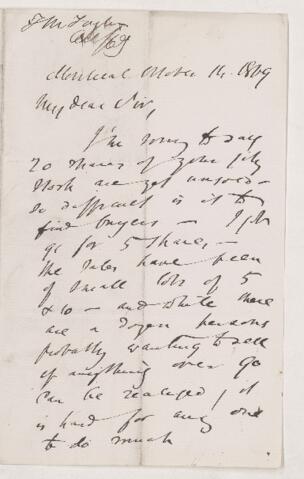 Montreal October 14. 1869
My dear Sir,
I'm sorry to say
20 shares of your City
Stock are yet unsold -
so difficult is it to
find buyers -
go for 5 share, -
The sales have been
of small lots of 5
& 10 - and while there
are a dozen persons
probably wanting to sell
if anything over 90
can be realized, it
is hard for any one
to do much